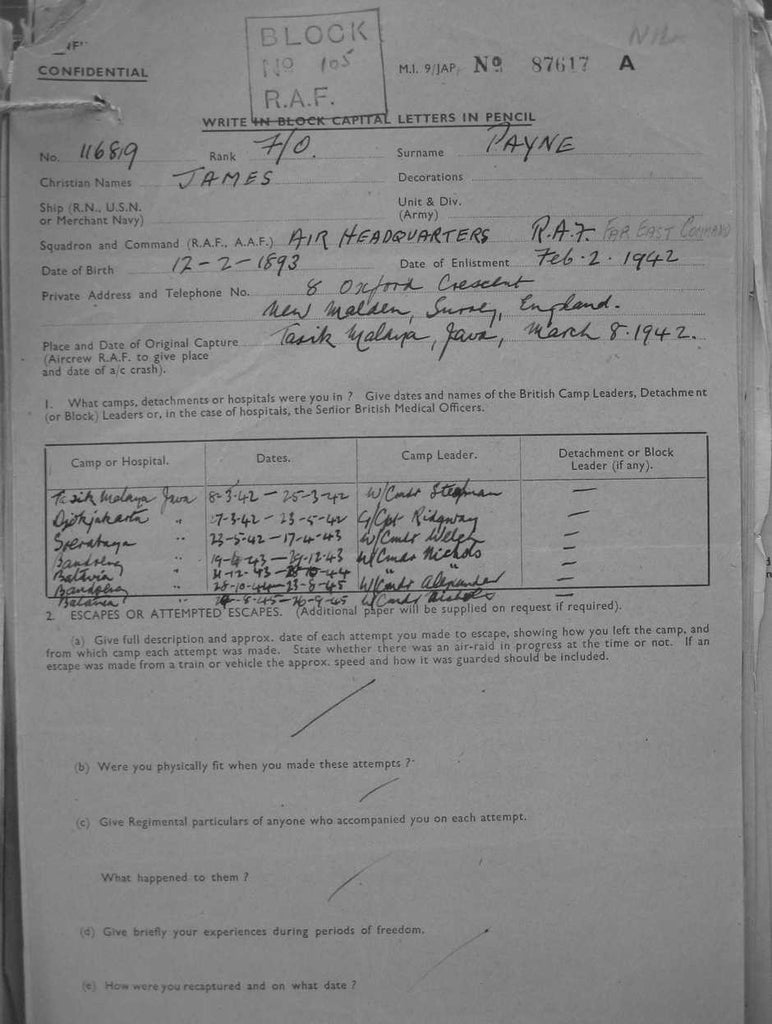 BLOCK
No 105
R.A.F.
CONFIDENTIAL
M.I. 9/JAP. No 87617 A
WRITE IN BLOCK CAPITAL LETTERS IN PENCIL
No. 116819 Rank F/O. Surname PAYNE
Christian Names JAMES Decorations
Ship (R.N., U.S.N. or Merchant Navy) Unit & Div. (Army)
Squadron and Command (R.A.F., A.A.F.) AIR HEADQUARTERS R.A.F. FAR EAST COMMAND
Date of Birth 12-2-1893 Date of Enlistment Feb. 2. 1942
Private Address and Telephone No. 8 Oxford Crescent
New Malden, Surrey, England.
Place and Date of Original Capture Tasik Malaya, Java, March 8. 1942.
(Aircrew R.A.F. to give place
and date of a/c crash).
1. What camps, detachments or hospitals were you in ? Give dates and names of the British Camp Leaders, Detachment
(or Block) Leaders or, in the case of hospitals, the Senior British Medical Officers.
Camp or Hospital. Dates. Camp Leader. Detachment or Block Leader (if any).
Tasik Malaya Java 8-3-42 — 25-3-42 W/Cmdr —
Djokjakarta " 7-3-42 — 23-5-42 G/Cpt Ridgway —
" 23-5-42 — 17-4-43 W/Cmdr Welch —
Bandoeng " 19-4-43 — 29-12-43 W/Cmdr Nichols —
Batavia 12-43 " —
Bandoeng " 28-10-44 — 23-8-45 W/Cmdr Alexander —
Batavia 8-45 — 26-9-45 W/Cmdr Nichols —
2. ESCAPES OR ATTEMPTED ESCAPES. (Additional paper will be supplied on request if required).
(a) Give full description and approx. date of each attempt you made to escape, showing how you left the camp, and
from which camp each attempt was made. State whether there was an air-raid in progress at the time or not. If an
escape was made from a train or vehicle the approx. speed and how it was guarded should be included.
(b) Were you physically fit when you made these attempts ?
(c) Give Regimental particulars of anyone who accompanied you on each attempt.
What happened to them ?
(d) Give briefly your experiences during periods of freedom.
(e) How were you recaptured and on what date ?